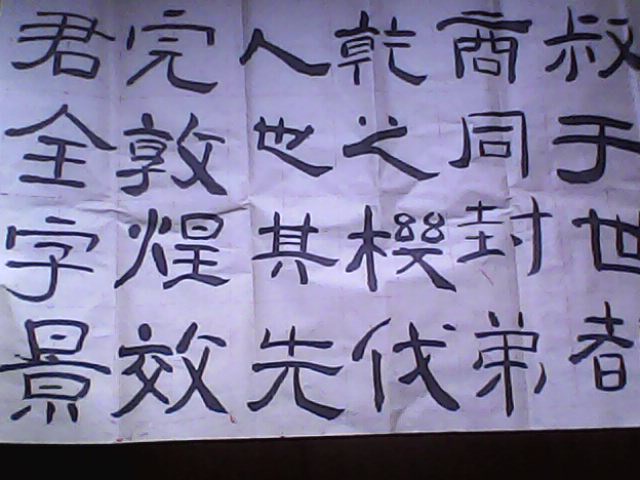 君全字景
完敦煌效
人也其先
乾之機伐
商同封弟
叔于世者